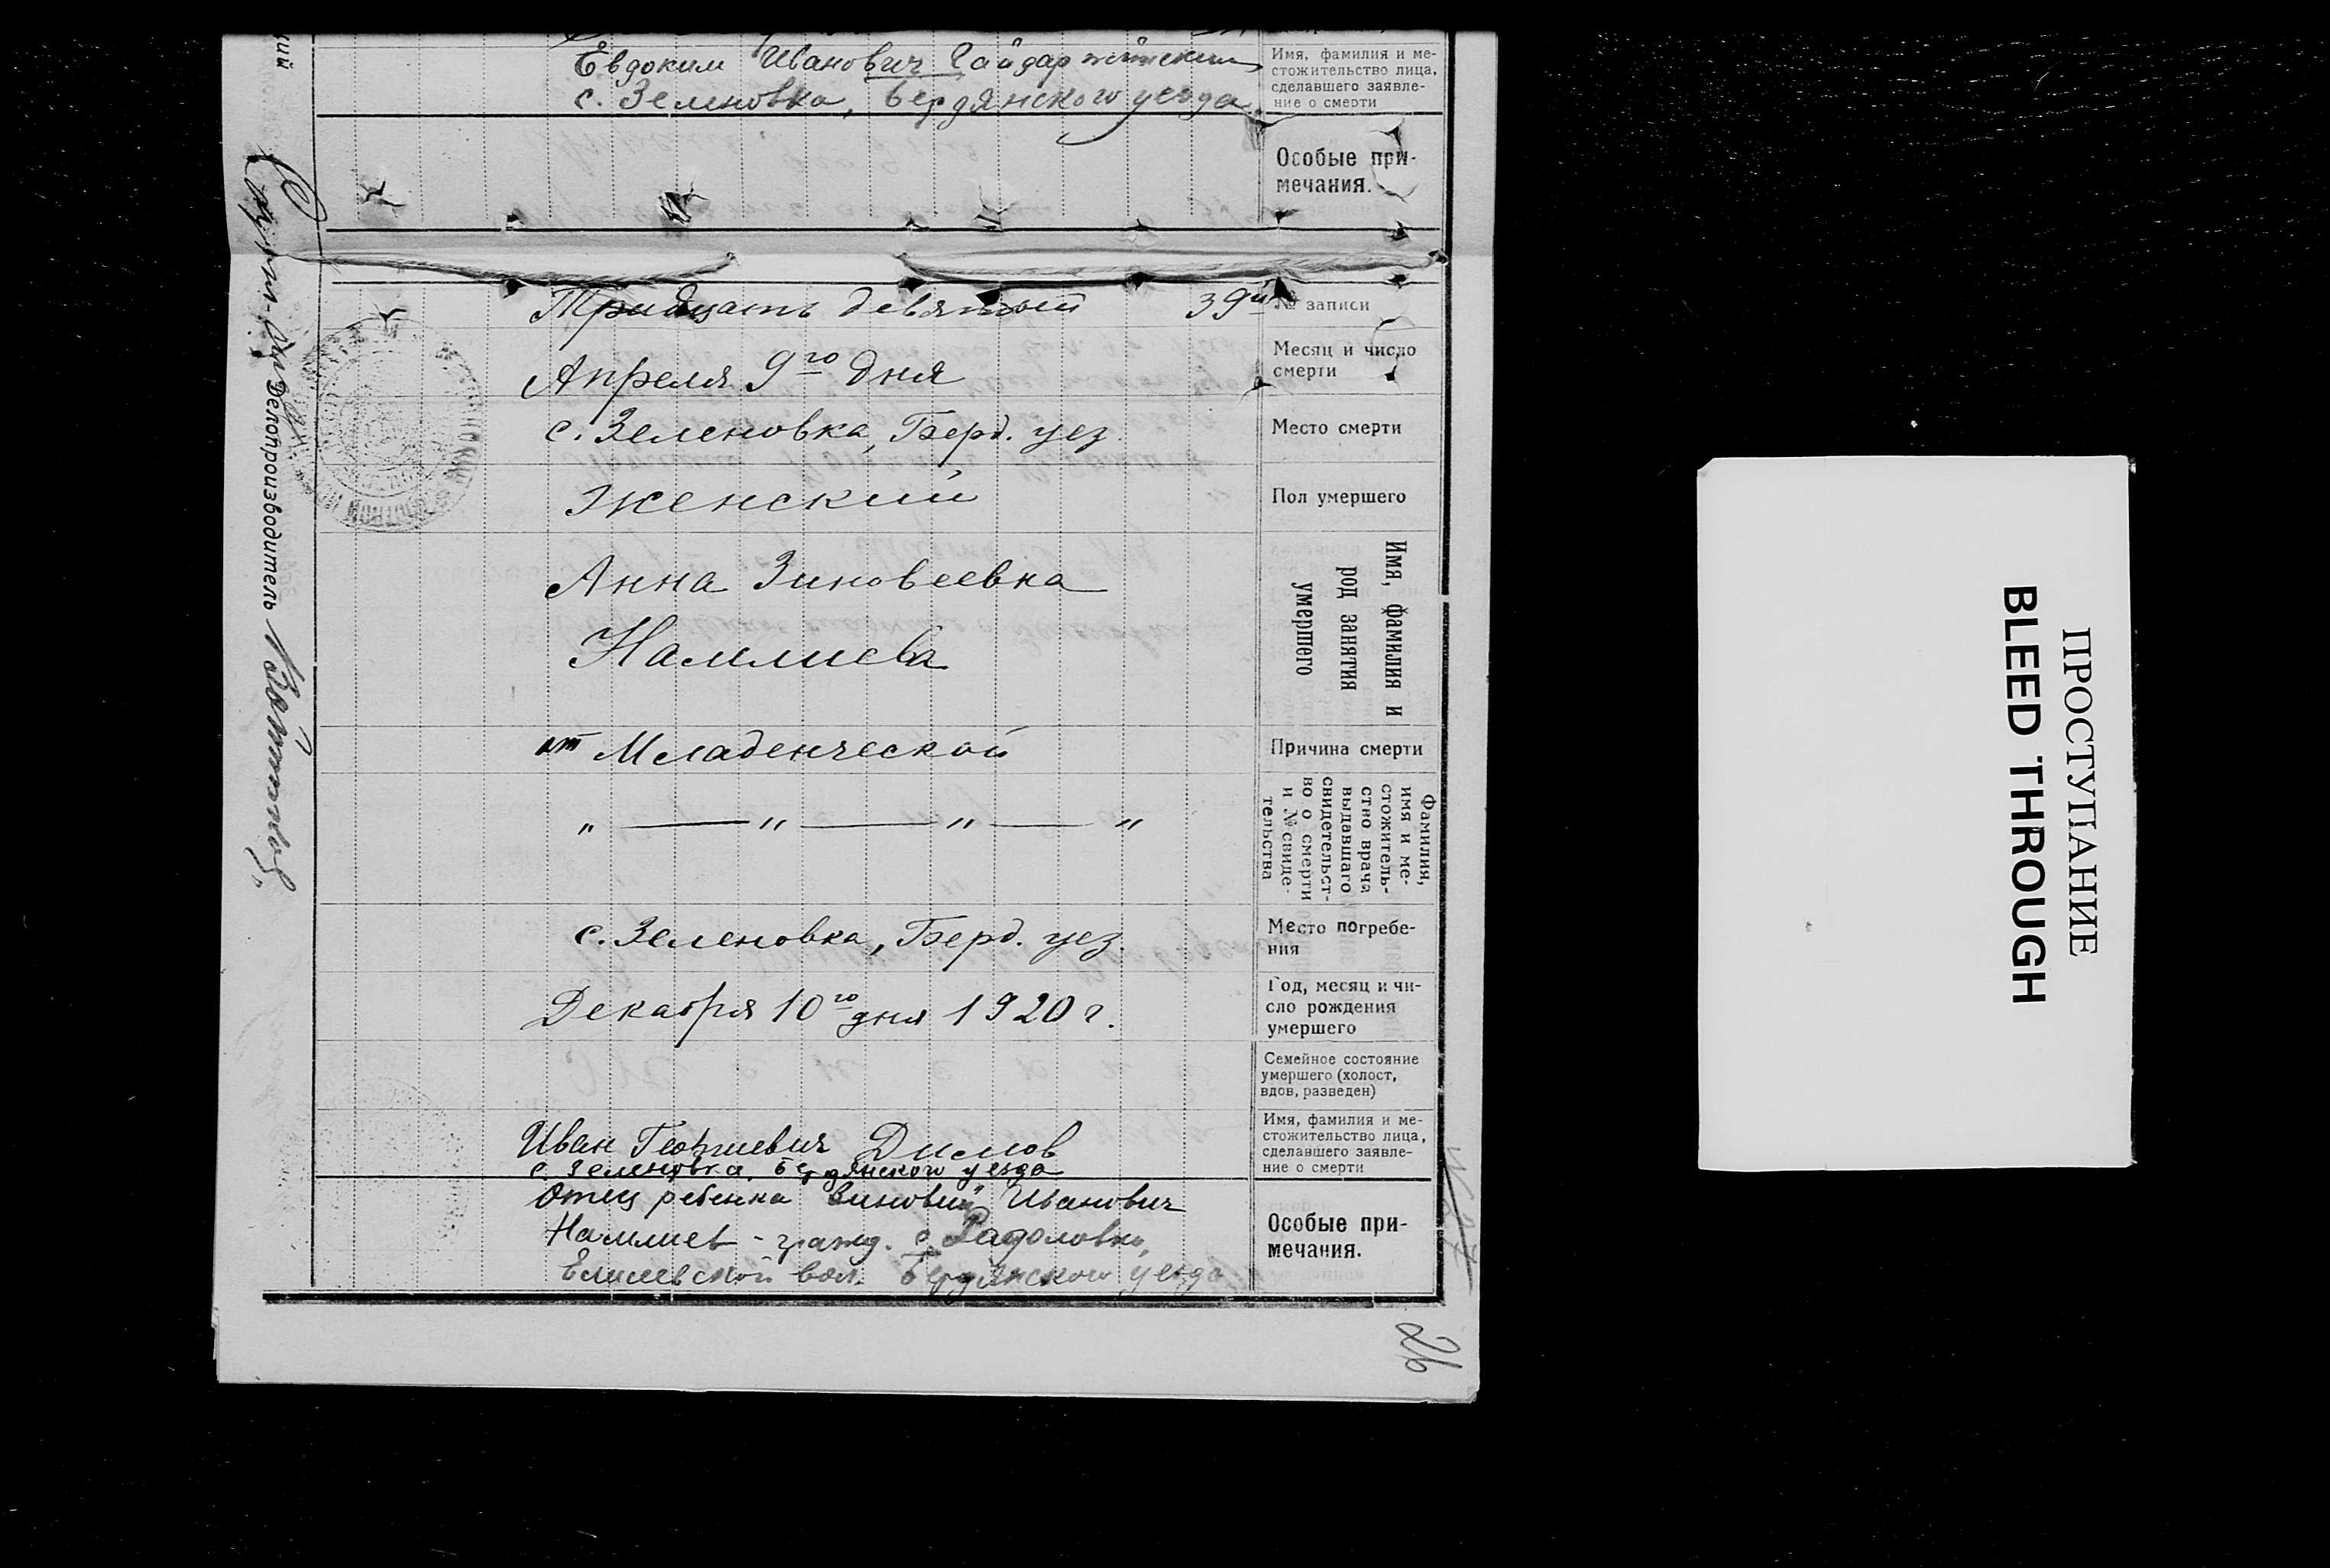 Евдоким Иванович Гайдаржийский
с. Зеленовка, Бердянского уезда
Имя, фамилия и ме-
стожительство лица,
сделавшего заявле-
ние о смерти
Особые при-
мечания.
Тридцать девятый 39й
№ записи
Апреля 9го дня
Месяц и число
смерти
с. Зеленовка, Берд. уез.
Место смерти
Женский
Пол умершего
Анна Зиновеевна
Намлиева
Имя, фамилия и
род занятия
умершего
от Младенческой
Причина смерти
" — " — " — "
Фамилия,
имя и ме-
стожитель-
ство врача
выдавшаго
свидетельст-
во о смерти
и № свиде-
тельства
с. Зеленовка, Берд. уез.
Место погребе-
ния
Декабря 10го дня 1920 г.
Год, месяц и чи-
сло рождения
умершего
Семейное состояние
умершего (холост,
вдов, разведен)
Иван Георгиевич Дислов
с. Зеленовка, Бердянского уезда
Имя, фамилия и ме-
стожительство лица,
сделавшего заявле-
ние о смерти
Отец ребенка Зиновий Иванович
Намлиев - гражд. с. Радоловки,
Елисеевской вол. Бердянского уезда
Особые при-
мечания.
26
Делопроизводитель
ПРОСТУПАНИЕ
BLEED THROUGH